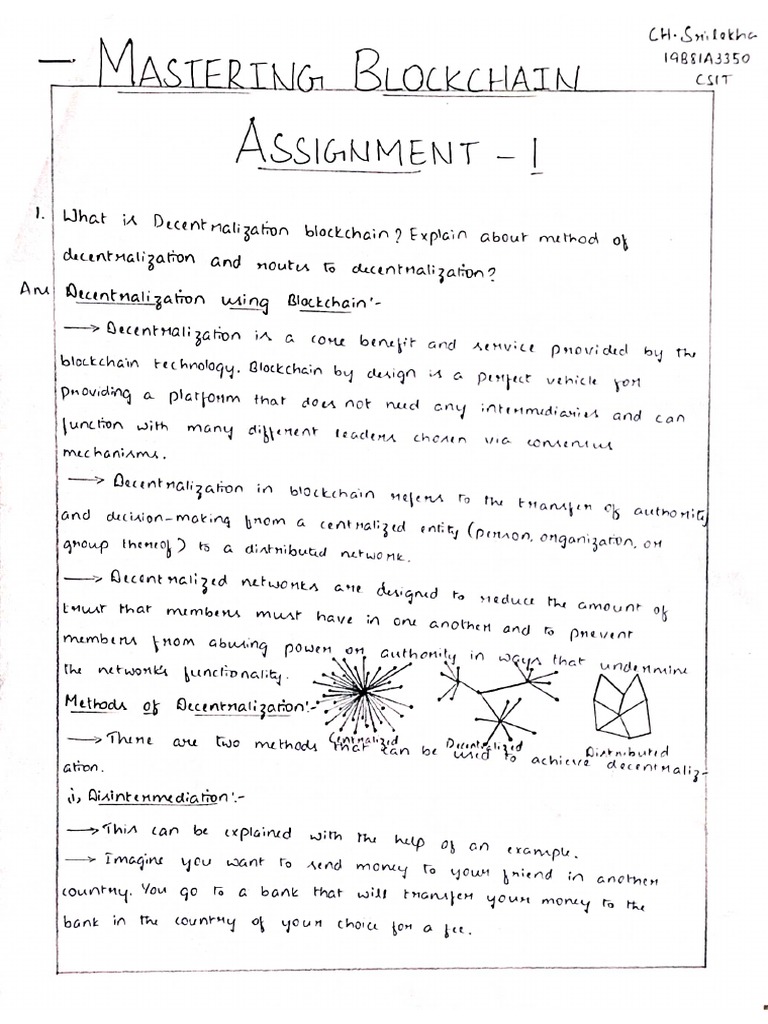 CH. Srilekha
19B81A3350
CSIT
— MASTERING BLOCKCHAIN
ASSIGNMENT - 1
1. What is Decentralization blockchain? Explain about method of
decentralization and routes to decentralization?
Ans Decentralization using Blockchain:-
→ Decentralization is a core benefit and service provided by the
blockchain technology. Blockchain by design is a perfect vehicle for
providing a platform that does not need any intermediaries and can
function with many different leaders chosen via consensus
mechanisms.
→ Decentralization in blockchain refers to the transfer of authority
and decision-making from a centralized entity (person, organization, or
group thereof) to a distributed network.
→ Decentralized networks are designed to reduce the amount of
trust that members must have in one another and to prevent
members from abusing power or authority in ways that undermine
the network's functionality.
Methods of Decentralization:-
Centralized Decentralized Distributed
→ There are two methods that can be used to achieve decentraliz-
ation.
i, Disintermediation:-
→ This can be explained with the help of an example.
→ Imagine you want to send money to your friend in another
country. You go to a bank that will transfer your money to the
bank in the country of your choice for a fee.